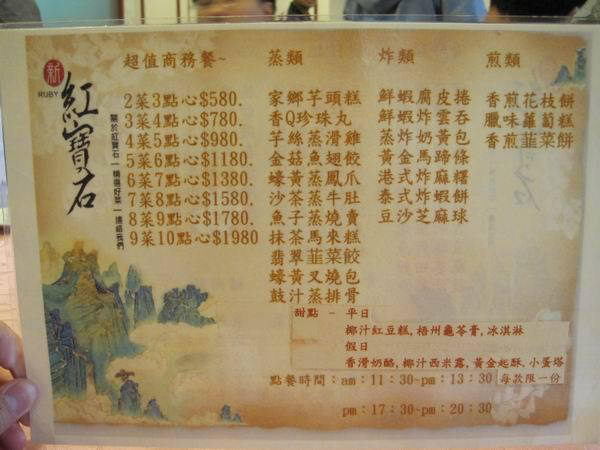 新
RUBY
紅寶石
關於紅寶石 | 精選好菜 | 連絡我們
超值商務餐~
2菜3點心$580.
3菜4點心$780.
4菜5點心$980.
5菜6點心$1180.
6菜7點心$1380.
7菜8點心$1580.
8菜9點心$1780.
9菜10點心$1980
蒸類
家鄉芋頭糕
香Q珍珠丸
芋絲蒸滑雞
金菇魚翅餃
蠔黃蒸鳳爪
沙茶蒸牛肚
魚子蒸燒賣
抹茶馬來糕
翡翠韮菜餃
蠔黃叉燒包
鼓汁蒸排骨
炸類
鮮蝦腐皮捲
鮮蝦炸雲吞
蒸炸奶黃包
黃金馬蹄條
港式炸麻糬
泰式炸蝦餅
豆沙芝麻球
煎類
香煎花枝餅
臘味蘿蔔糕
香煎韮菜餅
甜點 - 平日
椰汁紅豆糕,梧州龜苓膏,冰淇淋
假日
香滑奶酪,椰汁西米露,黃金起酥,小蛋塔
點餐時間:am:11:30~pm:13:30 每款限一份
pm:17:30~pm:20:30